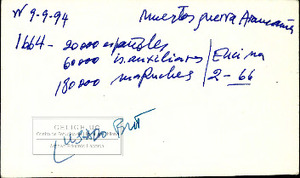 W 9-9-94 muertos guerra Araucanía
1664 - 20000 españoles
60000 auxiliares Encina
180000 mapuches 2-66
USADO